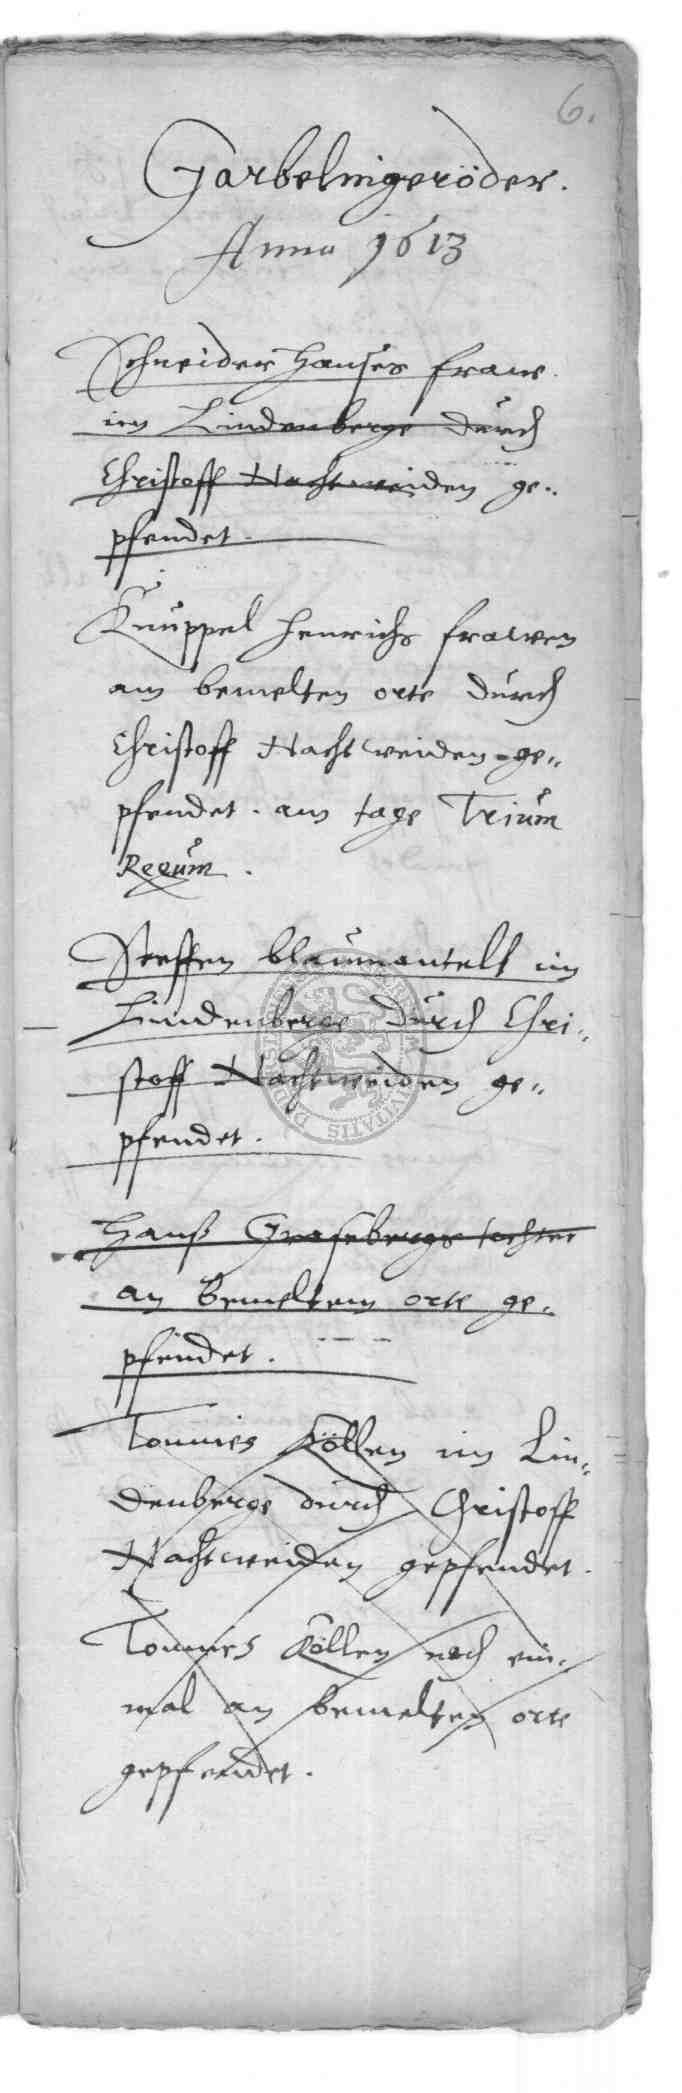 6.
Garbelnigeröder.
Anno 1613
Schneider Hanses fraw
im Lindenberge durch
Christoff Nachtweiden ge-
pfendet.
Knüppel Henrichs frawen
am bemelten orte durch
Christoff Nachtweiden ge-
pfendet. am tage Trium
Regum.
Steffen blaumantell im
Lindenberge durch Chri-
stoff Nachtweiden ge-
pfendet.
Hanß Grasebergs tochter
an bemeltem orte ge-
pfendet.
Tonnies Köllen im Lin-
denberge durch Christoff
Nachtweiden gepfendet.
Tonnies Köllen noch ein-
mal an bemelten orte
gepfendet.